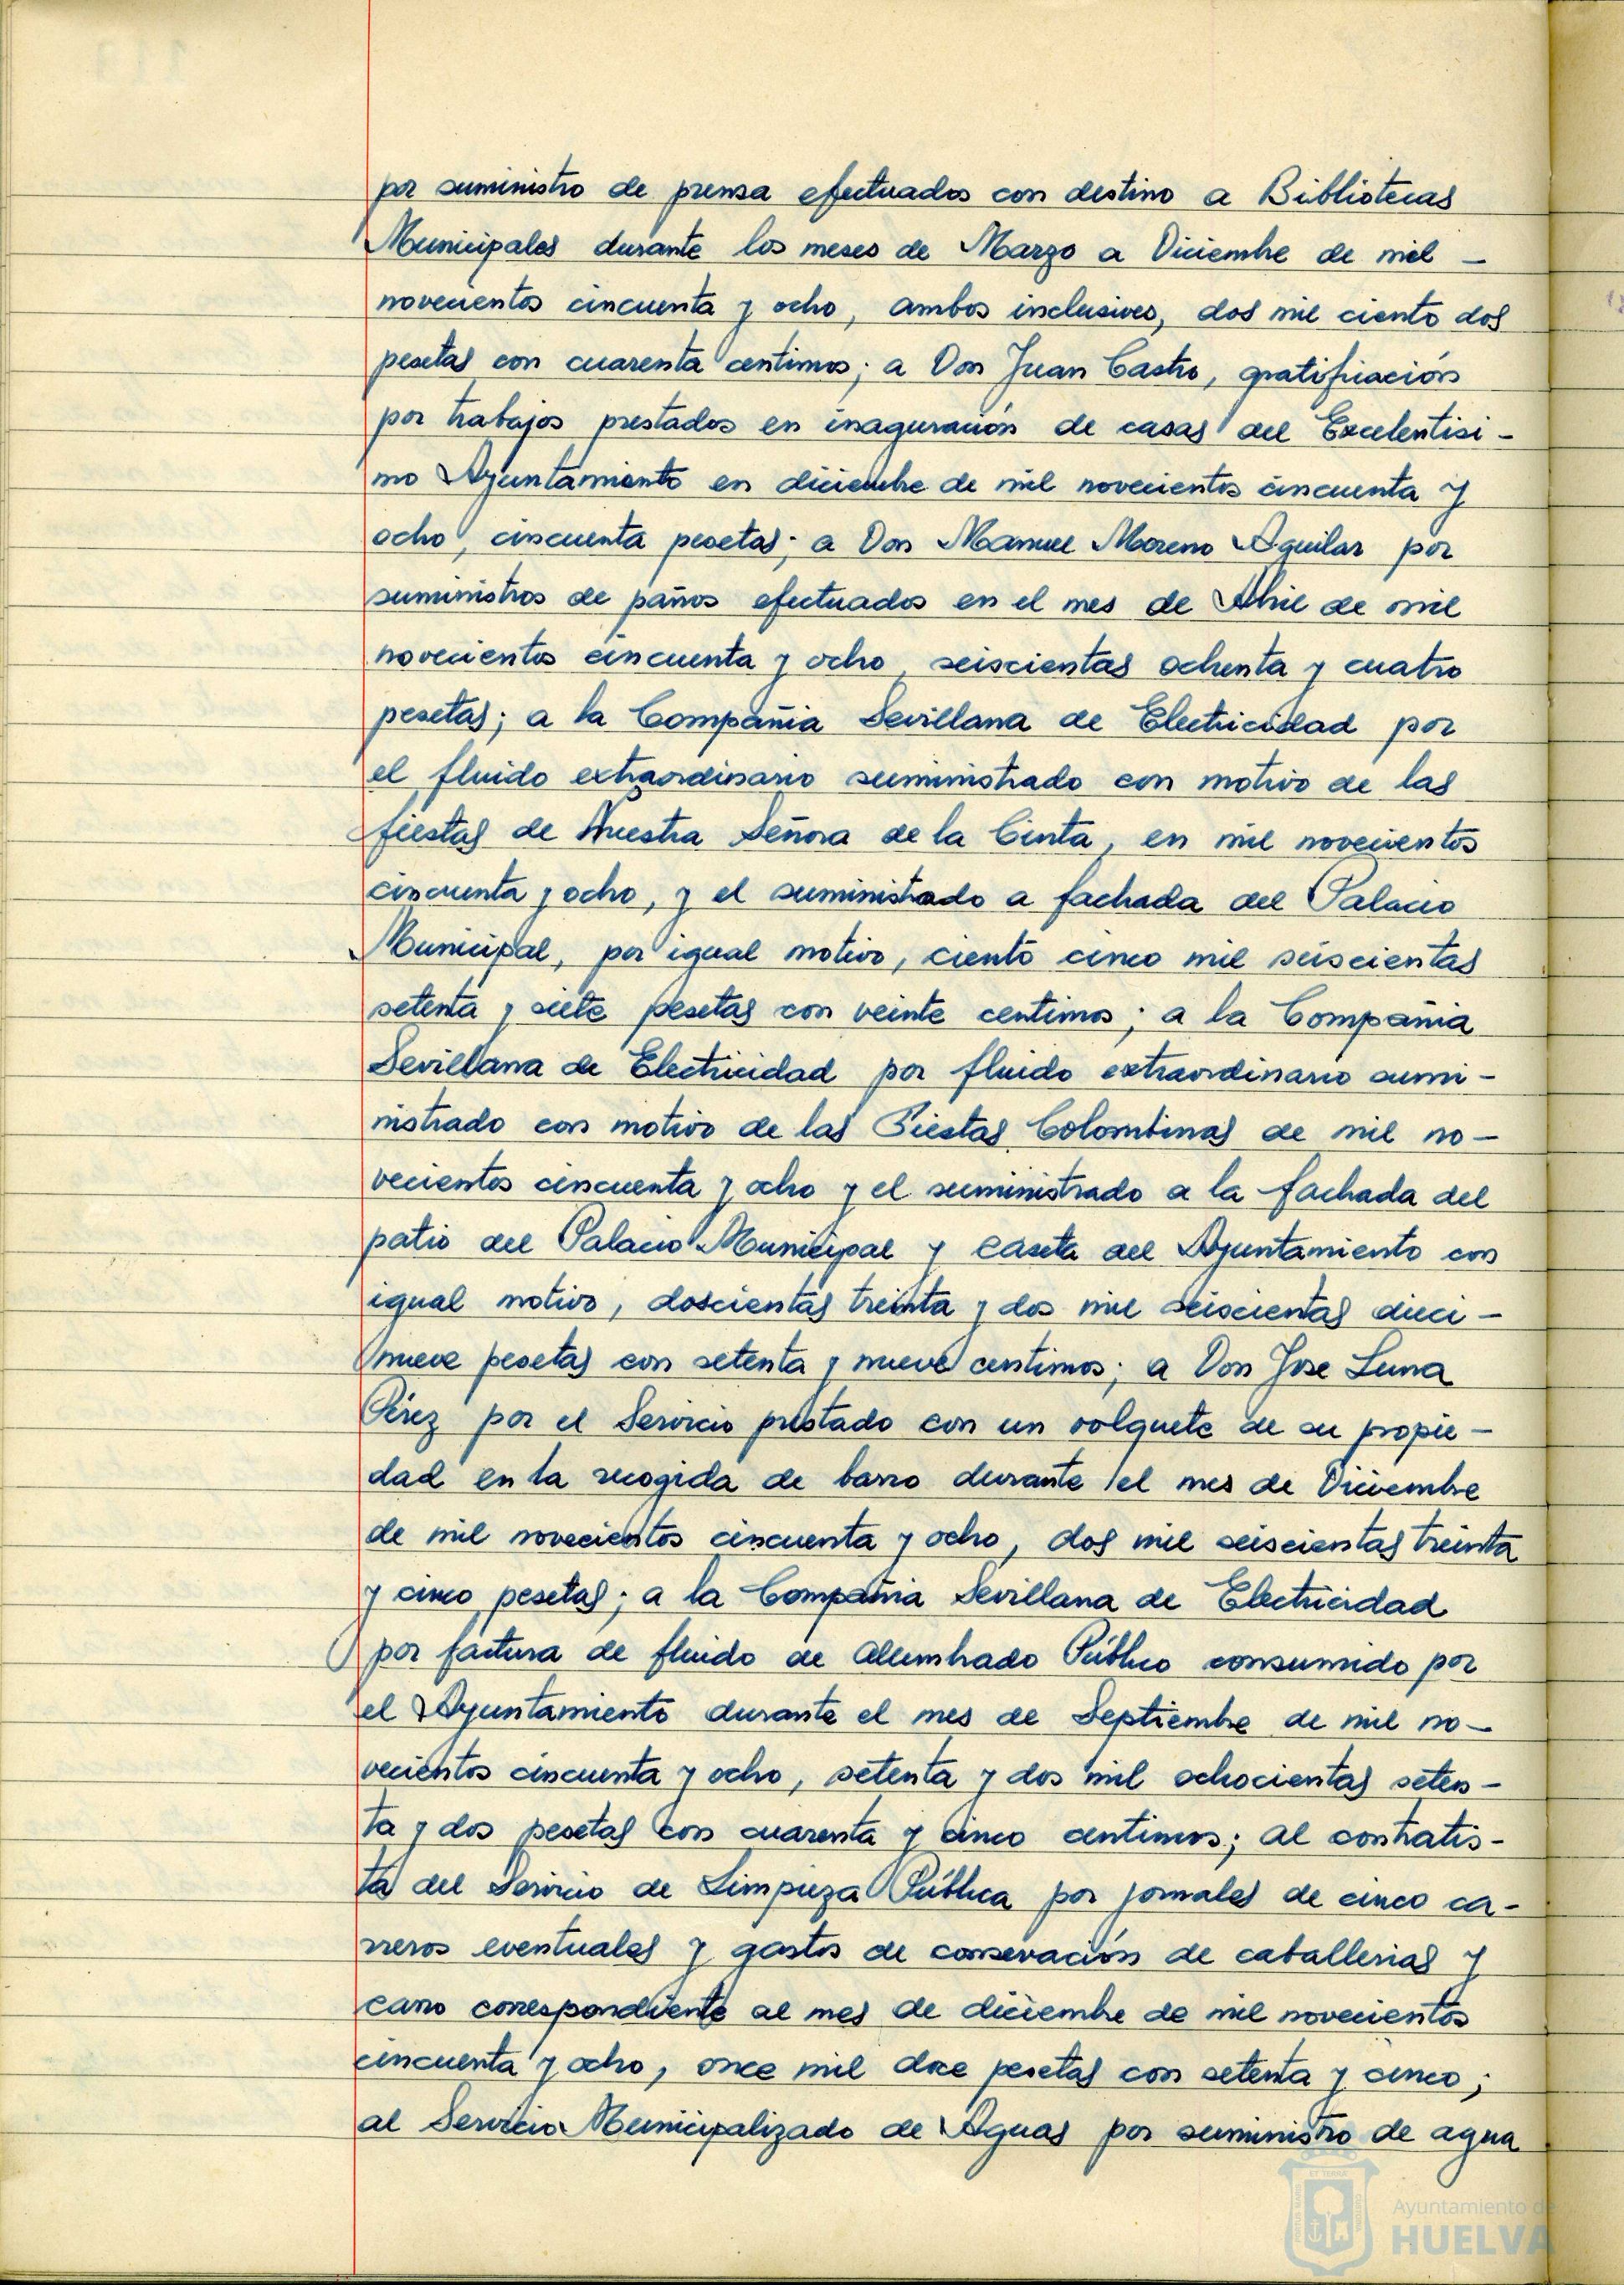 por suministro de prensa efectuados con destino a Bibliotecas
Municipales durante los meses de Marzo a Diciembre de mil –
novecientos cincuenta y ocho, ambos inclusives, dos mil ciento dos
pesetas con cuarenta centimos; a Don Juan Castro, gratificación
por trabajos prestados en inaguración de casas del Excelentisi-
mo Ayuntamiento en diciembre de mil novecientos cincuenta y
ocho, cincuenta pesetas; a Don Manuel Moreno Aguilar por
suministros de paños efectuados en el mes de Abril de mil
novecientos cincuenta y ocho, seiscientas ochenta y cuatro
pesetas; a la Compañia Sevillana de Electricidad por
el fluido extraordinario suministrado con motivo de las
fiestas de Nuestra Señora de la Cinta, en mil novecientos
cincuenta y ocho, y el suministrado a fachada del Palacio
Municipal, por igual motivo, ciento cinco mil seiscientas
setenta y siete pesetas con veinte centimos; a la Compañia
Sevillana de Electricidad por fluido extraordinario sumi-
nistrado con motivo de las Fiestas Colombinas de mil no-
vecientos cincuenta y ocho y el suministrado a la fachada del
patio del Palacio Municipal y caseta del Ayuntamiento con
igual motivo, doscientas treinta y dos mil seiscientas dieci-
nueve pesetas con setenta y nueve centimos; a Don Jose Luna
Pérez por el Servicio prestado con un volquete de su propie-
dad en la recogida de barro durante el mes de Diciembre
de mil novecientos cincuenta y ocho, dos mil seiscientas treinta
y cinco pesetas; a la Compañia Sevillana de Electricidad
por factura de fluido de alumbrado Público consumido por
el Ayuntamiento durante el mes de Septiembre de mil no-
vecientos cincuenta y ocho, setenta y dos mil ochocientas seten-
ta y dos pesetas con cuarenta y cinco centimos; al contratis-
ta del Servicio de Limpieza Pública por jornales de cinco ca-
rreros eventuales y gastos de conservación de caballerias y
carro correspondiente al mes de diciembre de mil novecientos
cincuenta y ocho, once mil doce pesetas con setenta y cinco;
al Servicio Municipalizado de Aguas por suministro de agua
Ayuntamiento de
HUELVA